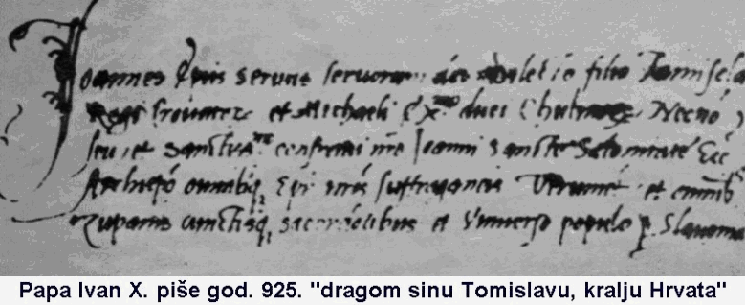 Joannes Epûs servus servorum dei dilecto filio Tamisclao
Regi et Michaeli duci Necnõ
et confratri nr̃o Joanni Sanctæ Salonitanæ Ecc
Archiepõ omnibq; Epis suffraganeis et omnib
Zupanis cunctisq; sacerdotibus et Universo populo p Slavonia
Papa Ivan X. piše god. 925. "dragom sinu Tomislavu, kralju Hrvata"